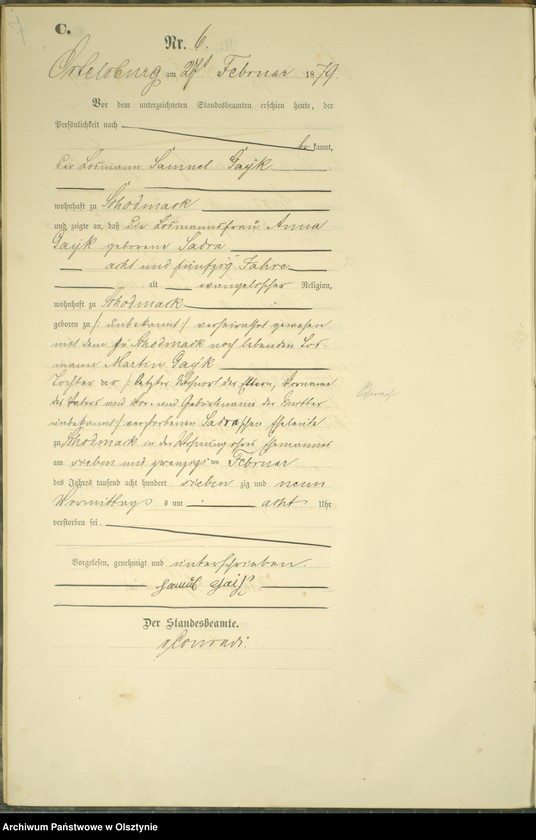 C.
Nr. 6.
Ortelsburg am 27t Februar 1879.
Vor dem unterzeichneten Standesbeamten erschien heute, der
Persönlichkeit nach
be kannt,
der Losmann Samuel Gayk
wohnhaft zu Schodmack
und zeigte an, daß die Losmannsfrau Anna
Gayk geborene Sadra
acht und fünfzig Jahre
alt evangelischer Religion,
wohnhaft zu Schodmack
geboren zu /: unbekannt :/ verheirathet gewesen
mit dem zu Schodmack noch lebenden Los-
mann Martin Gayk
Tochter der /: letzter Wohnort der Eltern, Vorname
des Vaters und Vor- und Geburtsname der Mutter
unbekannt :/ verstorbenen Sadraschen Eheleute
zu Schodmack in der Wohnung ihres Ehemannes
am sieben und zwanzigsten Februar
des Jahres tausend acht hundert sieben zig und neun
Vormittags um acht Uhr
verstorben sei.
Vorgelesen, genehmigt und unterschrieben.
Samul
Der Standesbeamte.
Conradi.
Archiwum Państwowe w Olsztynie